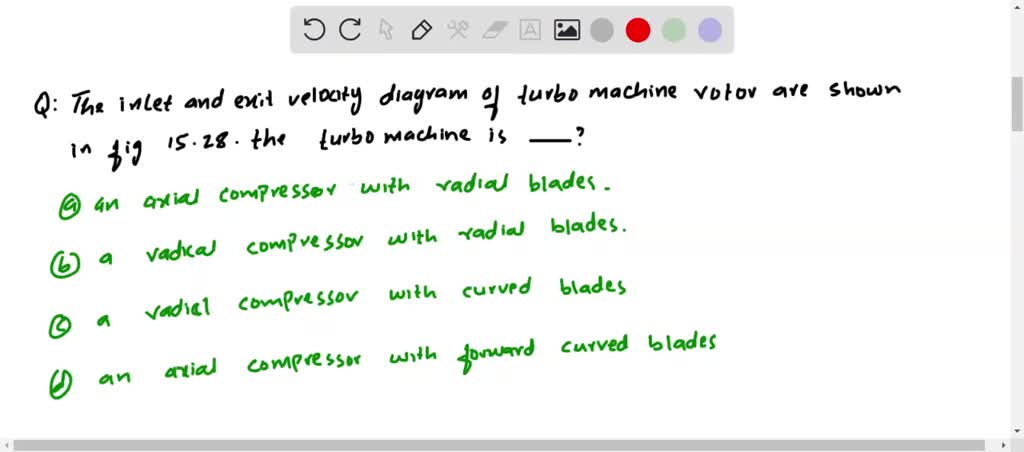 Q: The inlet and exit velocity diagram of turbo machine rotor are shown
in fig 15.28. the turbo machine is ___?
(a) an axial compressor with radial blades.
(b) a radical compressor with radial blades.
(c) a radial compressor with curved blades
(d) an axial compressor with forward curved blades